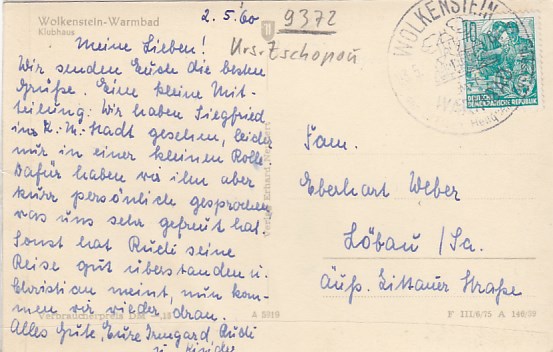 Wolkenstein-Warmbad
Klubhaus
2.5.60
9372
Krs. Zschopau
Meine Lieben!
Wir senden Euch die besten
Grüße. Eine kleine Mit-
teilung: Wir haben Siegfried
in K.M.-Stadt gesehen, leider
nur in einer kleinen Rolle.
Dafür haben wir ihn aber
kurz persönlich gesprochen
was uns sehr gefreut hat.
Sonst hat Rudi seine
Reise gut überstanden u.
Christian meint, nun kom-
men wir wieder dran.
Alles Gute Eure Irmgard, Rudi
u. Kinder
Verbraucherpreis DM
A 5219
Verlag Erhard
WOLKENSTEIN
10
DEUTSCHE
DEMOKRATISCHE REPUBLIK
Fam.
Eberhart Weber
Löbau /Sa.
Äuß. Zittauer Straße
F III/6/75 A 146/59